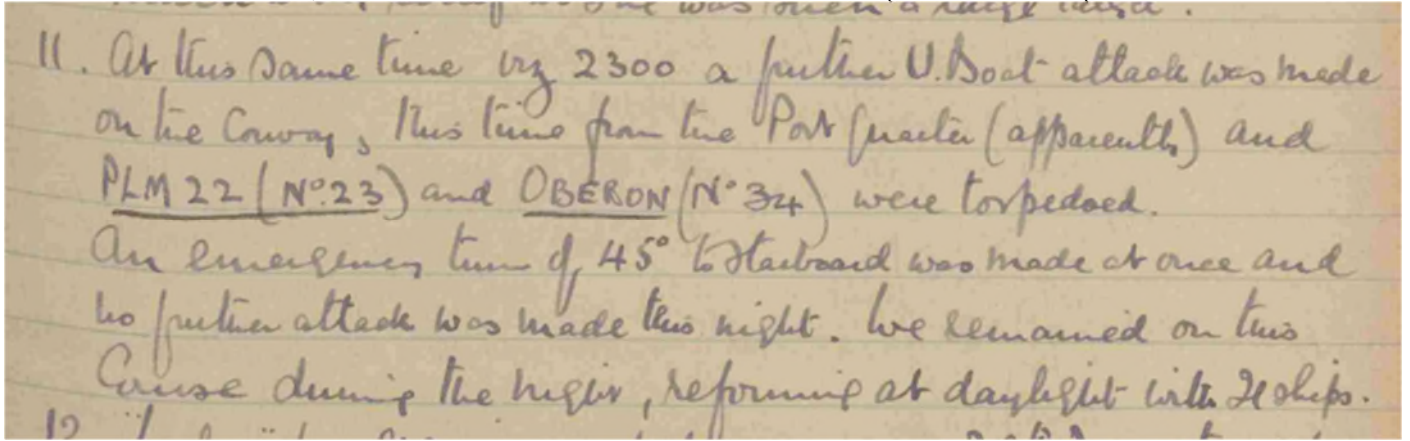 was such a large
11. At this same time viz 2300 a further U.Boat attack was made
on the Convoy, this time from the Port Quarter (apparently) and
PLM 22 (No.23) and OBERON (No 34) were torpedoed.
An emergency turn of 45° to Starboard was made at once and
no further attack was made this night. We remained on this
Course during the night, reforming at daylight with ships.
12.